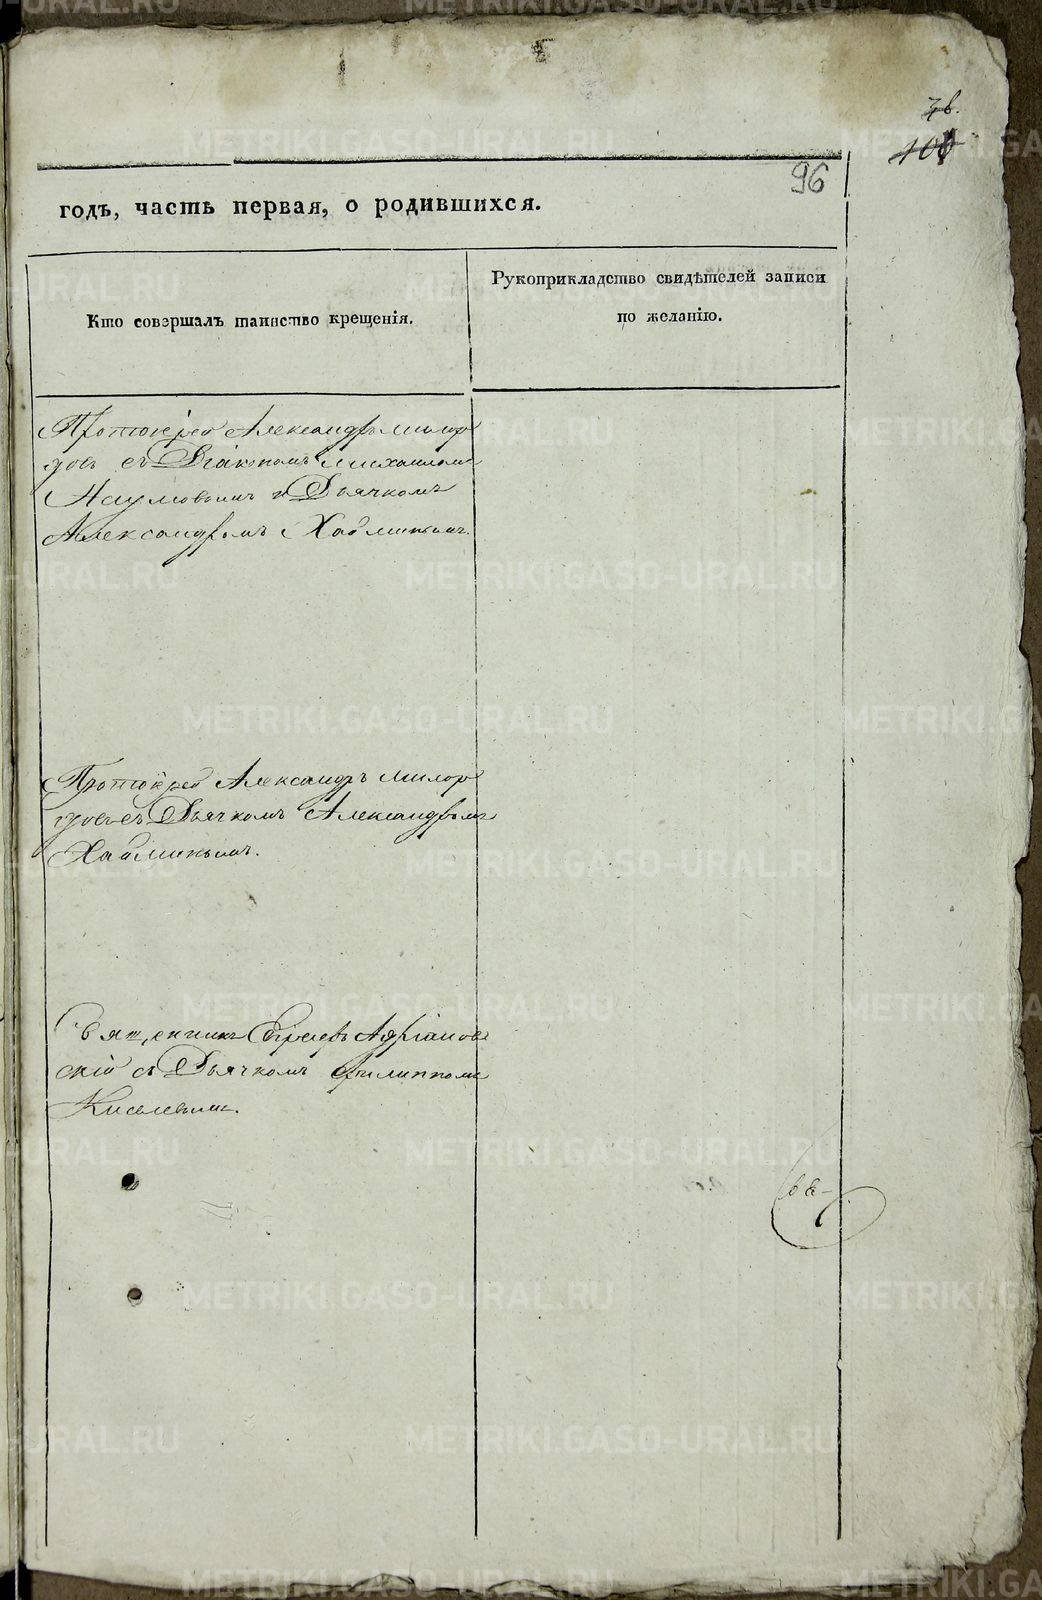 96
годъ, часть первая, о родившихся.
Кто совершалъ таинство крещенія.
Рукоприкладство свидѣтелей записи
по желанію.
Протоіерей Александръ Милор
довъ съ Діакономъ Михаиломъ
Наумовымъ и Дьячкомъ
Александромъ Хаблинымъ.
Протоіерей Александръ Милор
довъ съ Дьячкомъ Александромъ
Священникъ Сергѣевъ Адріанов
скій съ Дьячкомъ Филиппомъ
Киселевымъ.
METRIKI.GASO-URAL.RU